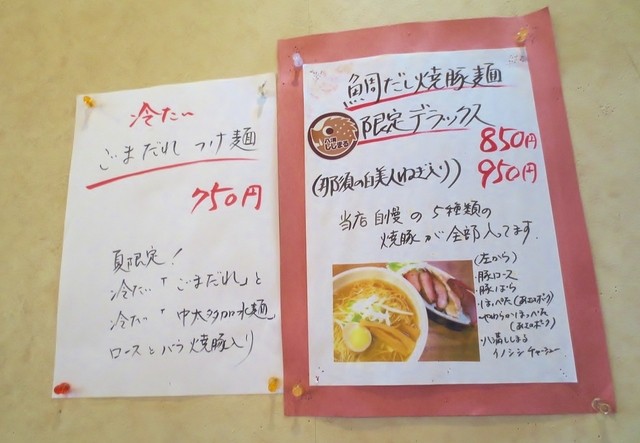 冷たい
ごまだれ つけ麺
750円
夏限定!
冷たい「ごまだれ」と
冷たい「中太多加水麺」
ロースとバラ焼豚入り
鯛だし焼豚麺
限定デラックス
八溝
ししまる
850円
(那須の白美人ねぎ入り) 950円
当店自慢の5種類の
焼豚が全部入ってます.
(左から)
・豚ロース
・豚ばら
・ほっぺた
・やわらかほっぺた
・八溝ししまる
イノシシチャーシュー